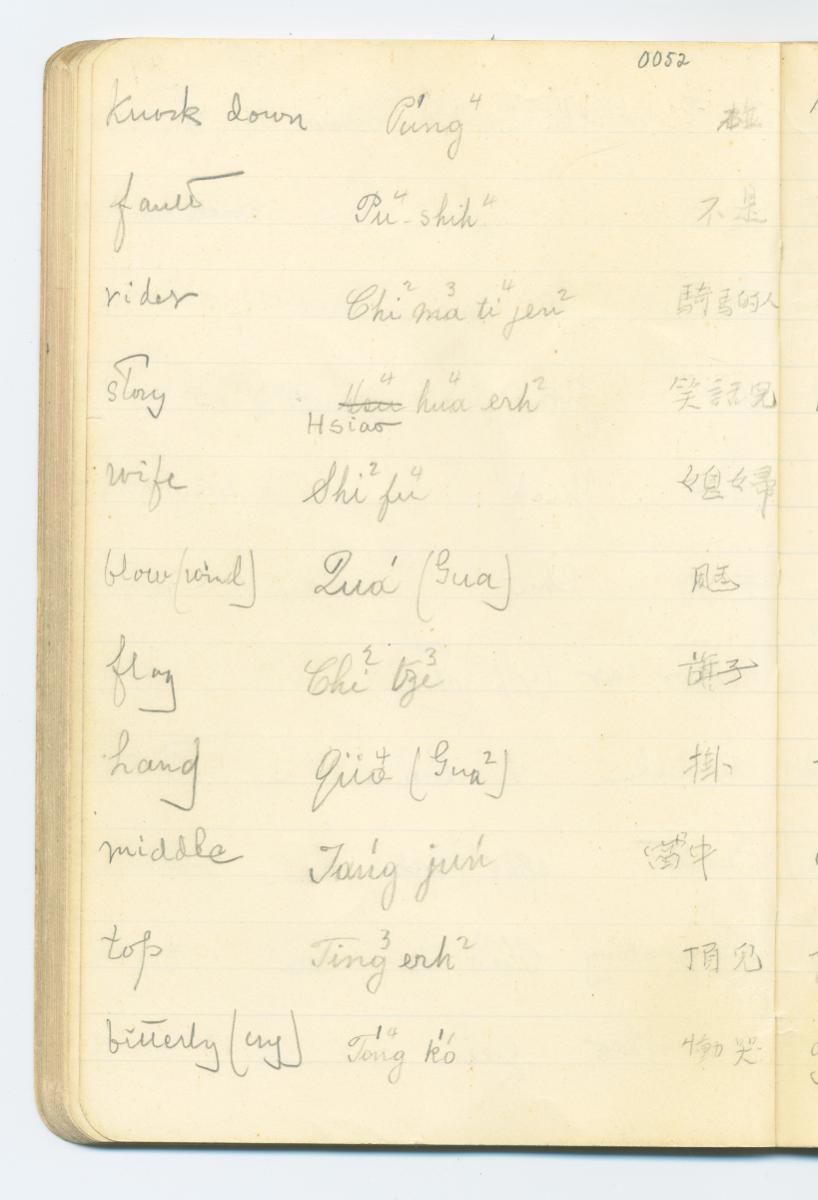 0052
Knock down Púng⁴ 碰
fault Pu⁴-shih⁴ 不是
rider Chi² ma³ ti⁴ jen² 騎馬的人
story Hsiao⁴ hua⁴ erh² 笑話兒
wife Shi² fu⁴ 媳婦
blow (wind) Quá (Gua)
flag Chi² tze³ 旗子
hang Qüa⁴ (Gua²) 掛
middle Tańg juń 當中
top Ting³ erh² 頂兒
bitterly (cry) Tóng⁴ kó 慟哭